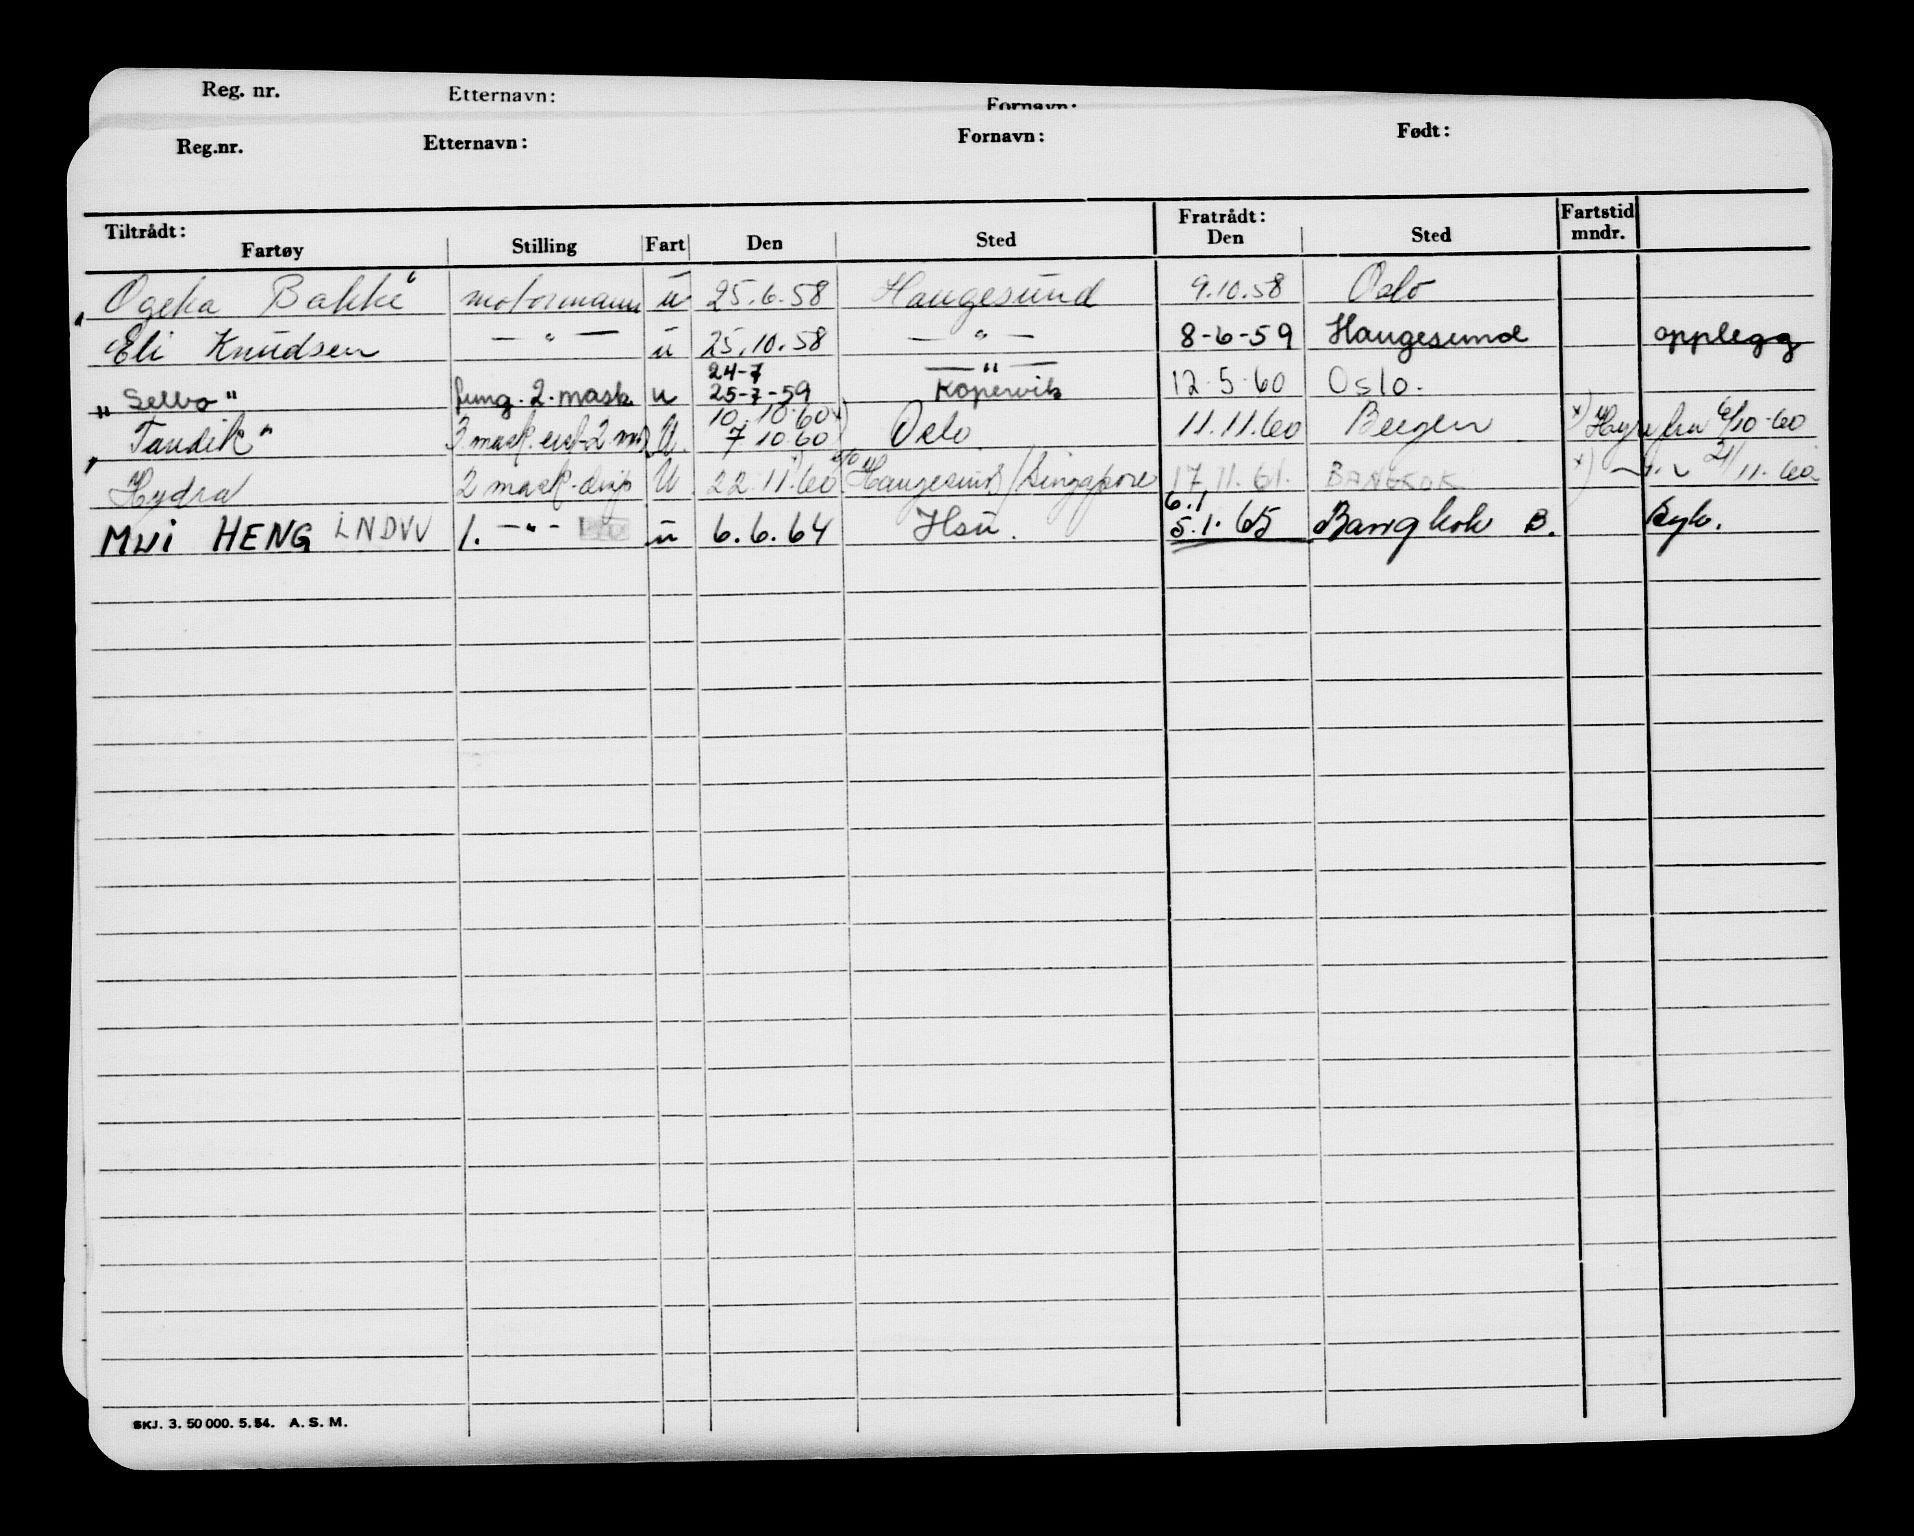 Reg. nr. Etternavn: Fornavn:
Reg.nr. Etternavn: Fornavn: Født:
Tiltrådt: Fratrådt: Fartstid
Fartøy Stilling Fart Den Sted Den Sted mndr.
"Ogeka Bakke" motormann u 25.6.58 Haugesund 9.10.58 Oslo
Eli Knudsen — " — u 25.10.58 — " — 8-6-59 Haugesund opplegg
24-7 — " —
"Selbo" fung. 2. mask u 25-7-59 Kopervik 12-5-60 Oslo.
10.10.60
"Tandik" 3 mask. 2 U. 7 10.60 Oslo 11.11.60 Bergen x) Hyre fra 6/10-60
Hydra 2 mask. U 22.11.60 Haugesund/Singapore 17.11.61. BANGKOK x) — " — 21/11.60
6.1
MUI HENG LNDVV 1. — " — u 6.6.64 Hsu. 5.1.65 Bangkok B. Syk.
SKJ. 3. 50 000. 5. 54. A. S. M.